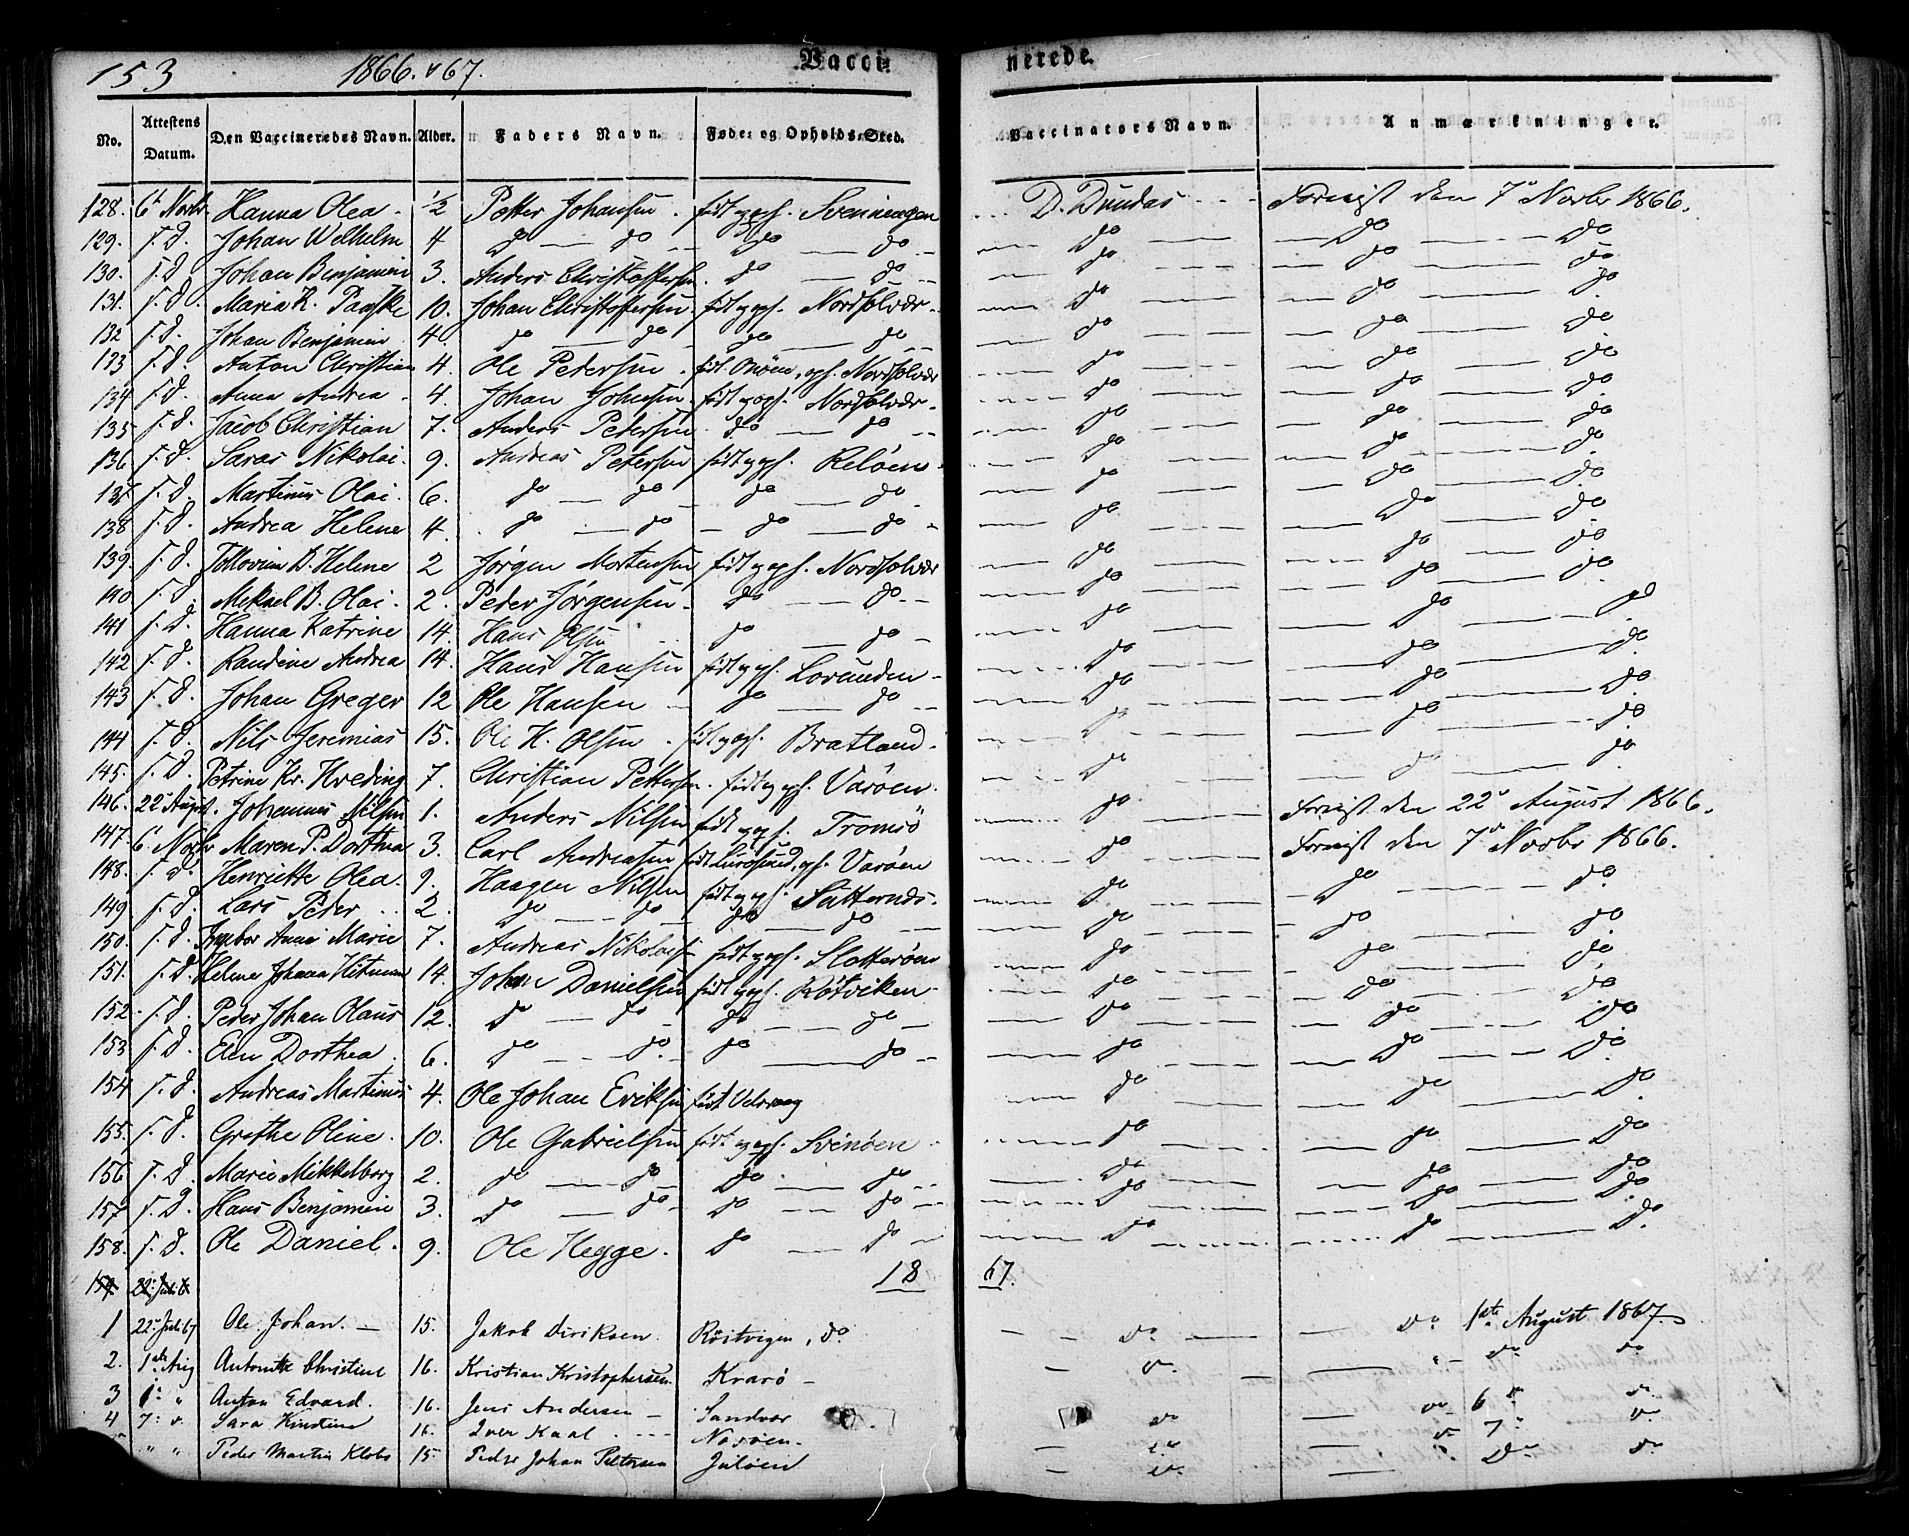 153 1866. & 67. Vacci- nerede.
No. Attestens Datum. Den Vaccineredes Navn. Alder. Faders Navn. Føde- og Opholds-Sted. Vaccinators Navn. Anmærkninger.
128. 6t Novbr Hanna Olea. 1/2 Petter Johansen. født og oph. Svenningen D. Dundas Forevist den 7de Novbr 1866.
129. s. d. Johan Welhelm 4 do do do do do do do
130. s. d. Johan Benjamin 3. Anders Christoffersen do do do do do
131. s. d. Maria K. Paaske 10. Johan Christoffersen født og oph. Nordsolvær do do do
132 s. d. Johan Benjamin 4. do do do do do do do
133 s. d. Anton Christian 4. Ole Pedersen født Onøen, oph. Nordsolvær do do do
134 s. d. Anna Andrea 4. Johan Johnsen født og oph. Nordsolvær do do do
135 s. d. Jacob Christian 7. Anders Petersen do do do do do
136 s. d. Saras Nikolai. 9. Andreas Petersen født og oph. Reløen do do do
137 s. d. Martinus Olai. 6. do do do do do do do
138 s. d. Andrea Helene 4. do do do do do do do
139. s. d. B. Helene 2 Jørgen Mortensen født og oph. Nordsolvær do do do
140 s. d. Mekael B. Olai. 2. Peder Jørgensen do do do do do
141 s. d. Hanna Katrine 14. Hans Olsen do do do do do
142 s. d. Randine Andrea 14. Hans Hansen født og oph. Lovunden do do do
143 s. d. Johan Greger 12 Ole Hansen do do do do do
144 s. d. Nils Jeremias 15. Ole H. Olsen født og oph. Bratland. do do do
145. s. d. Petrine Kr. Hveding 7. Christian Pettersen født og oph. Varøen. do do do
146. 22de August. Johannes Nilsen 1. Anders Nilsen født og oph. Tromsö do Forevist den 22de August 1866.
147. 6t Novbr Maren P. Dorthea 3. Carl Andreasen født Lurøsund, oph. Varøen do Forevist den 7de Novbr 1866.
148. s. d. Henriette Olea. 9. Haagen Nilsen født og oph. do do do
149 s. d. Lars Peder 2. do do do do do do do
150. s. d. Ingebor Anne Marie 7. Andreas Nikolaisen født og oph. Slotterøen do do do
151. s. d. Helene Johana 14. Johan Danielsen født og oph. Røtviken do do do
152. s. d. Peder Johan Olaus 12. do do do do do do do
153 s. d. Elen Dorthea. 6. do do do do do do do
154 s. d. Andreas Martinus 4. Ole Johan Eriksen født Velsvaag do do do
155. s. d. Grethe Oline. 10. Ole Gabrielsen født og oph. Svinøen do do do
156 s. d. Marie Mikkelborg 2. do do do do do do do
157 s. d. Hans Benjamin 3. do do do do do do do
158. s. d. Ole Daniel. 9. Ole Hegge. do do do do do
159 22. Juli 18 67.
1 22de Juli 67 Ole Johan. 15. Jakob Diriksen Röitvigen, do do do 1ste August 1867
2. 1ste Aug Antonette Christine 16. Kristian Kristophersen Kvarö do do do
3 1. " Anton Edvard. 16. Jens Andersen Sandvær do do 6 do do
4 7. do Sara Kirstine 16. Iver Kaal Nosøen do do 7. do
" " Peder Martin Klobs 15. Peder Johan Pettersen Juløen do do do